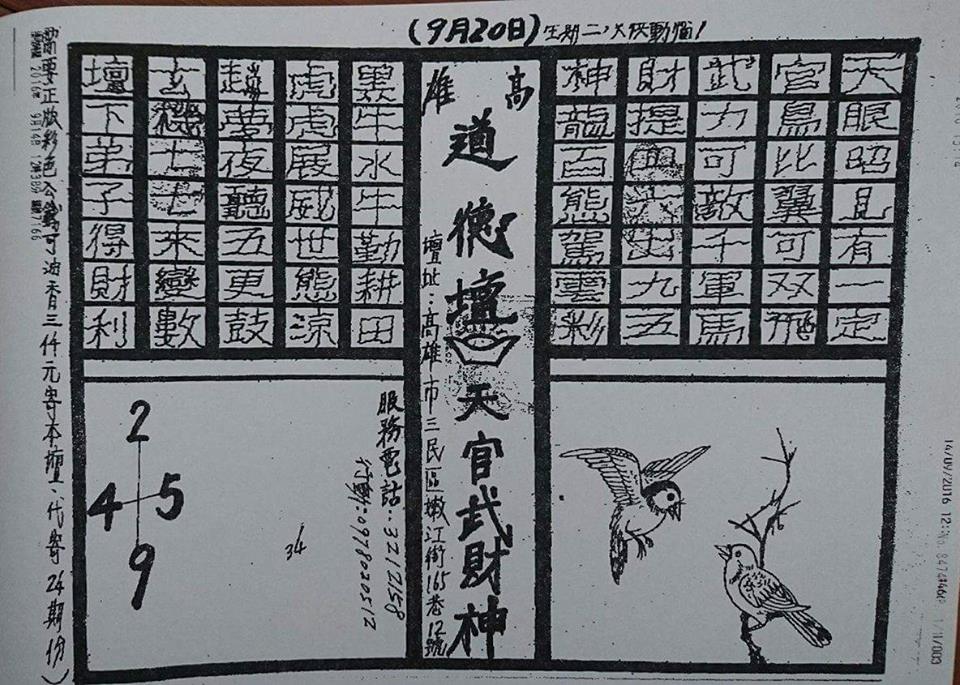 (9月20日)星期二、大伙動腦!
天眼昭見有一定
官鳥比翼可双飛
武力可敵千軍馬
財提 出九五
神龍百態駕雲彩
高雄
道德壇
天官武財神
壇址:高雄市三民區嫩江街165巷12號
異牛水牛勤耕田
虎虎展威世態涼
趙夢夜聽五更鼓
玄機七七來變數
壇下弟子得財利
服務電話:3212158
行動:0978020512
2
4 5
9
34
需要正版彩色 可油香三仟元寄本壇、代寄24期份)
14/09/2016 12: No. 8474